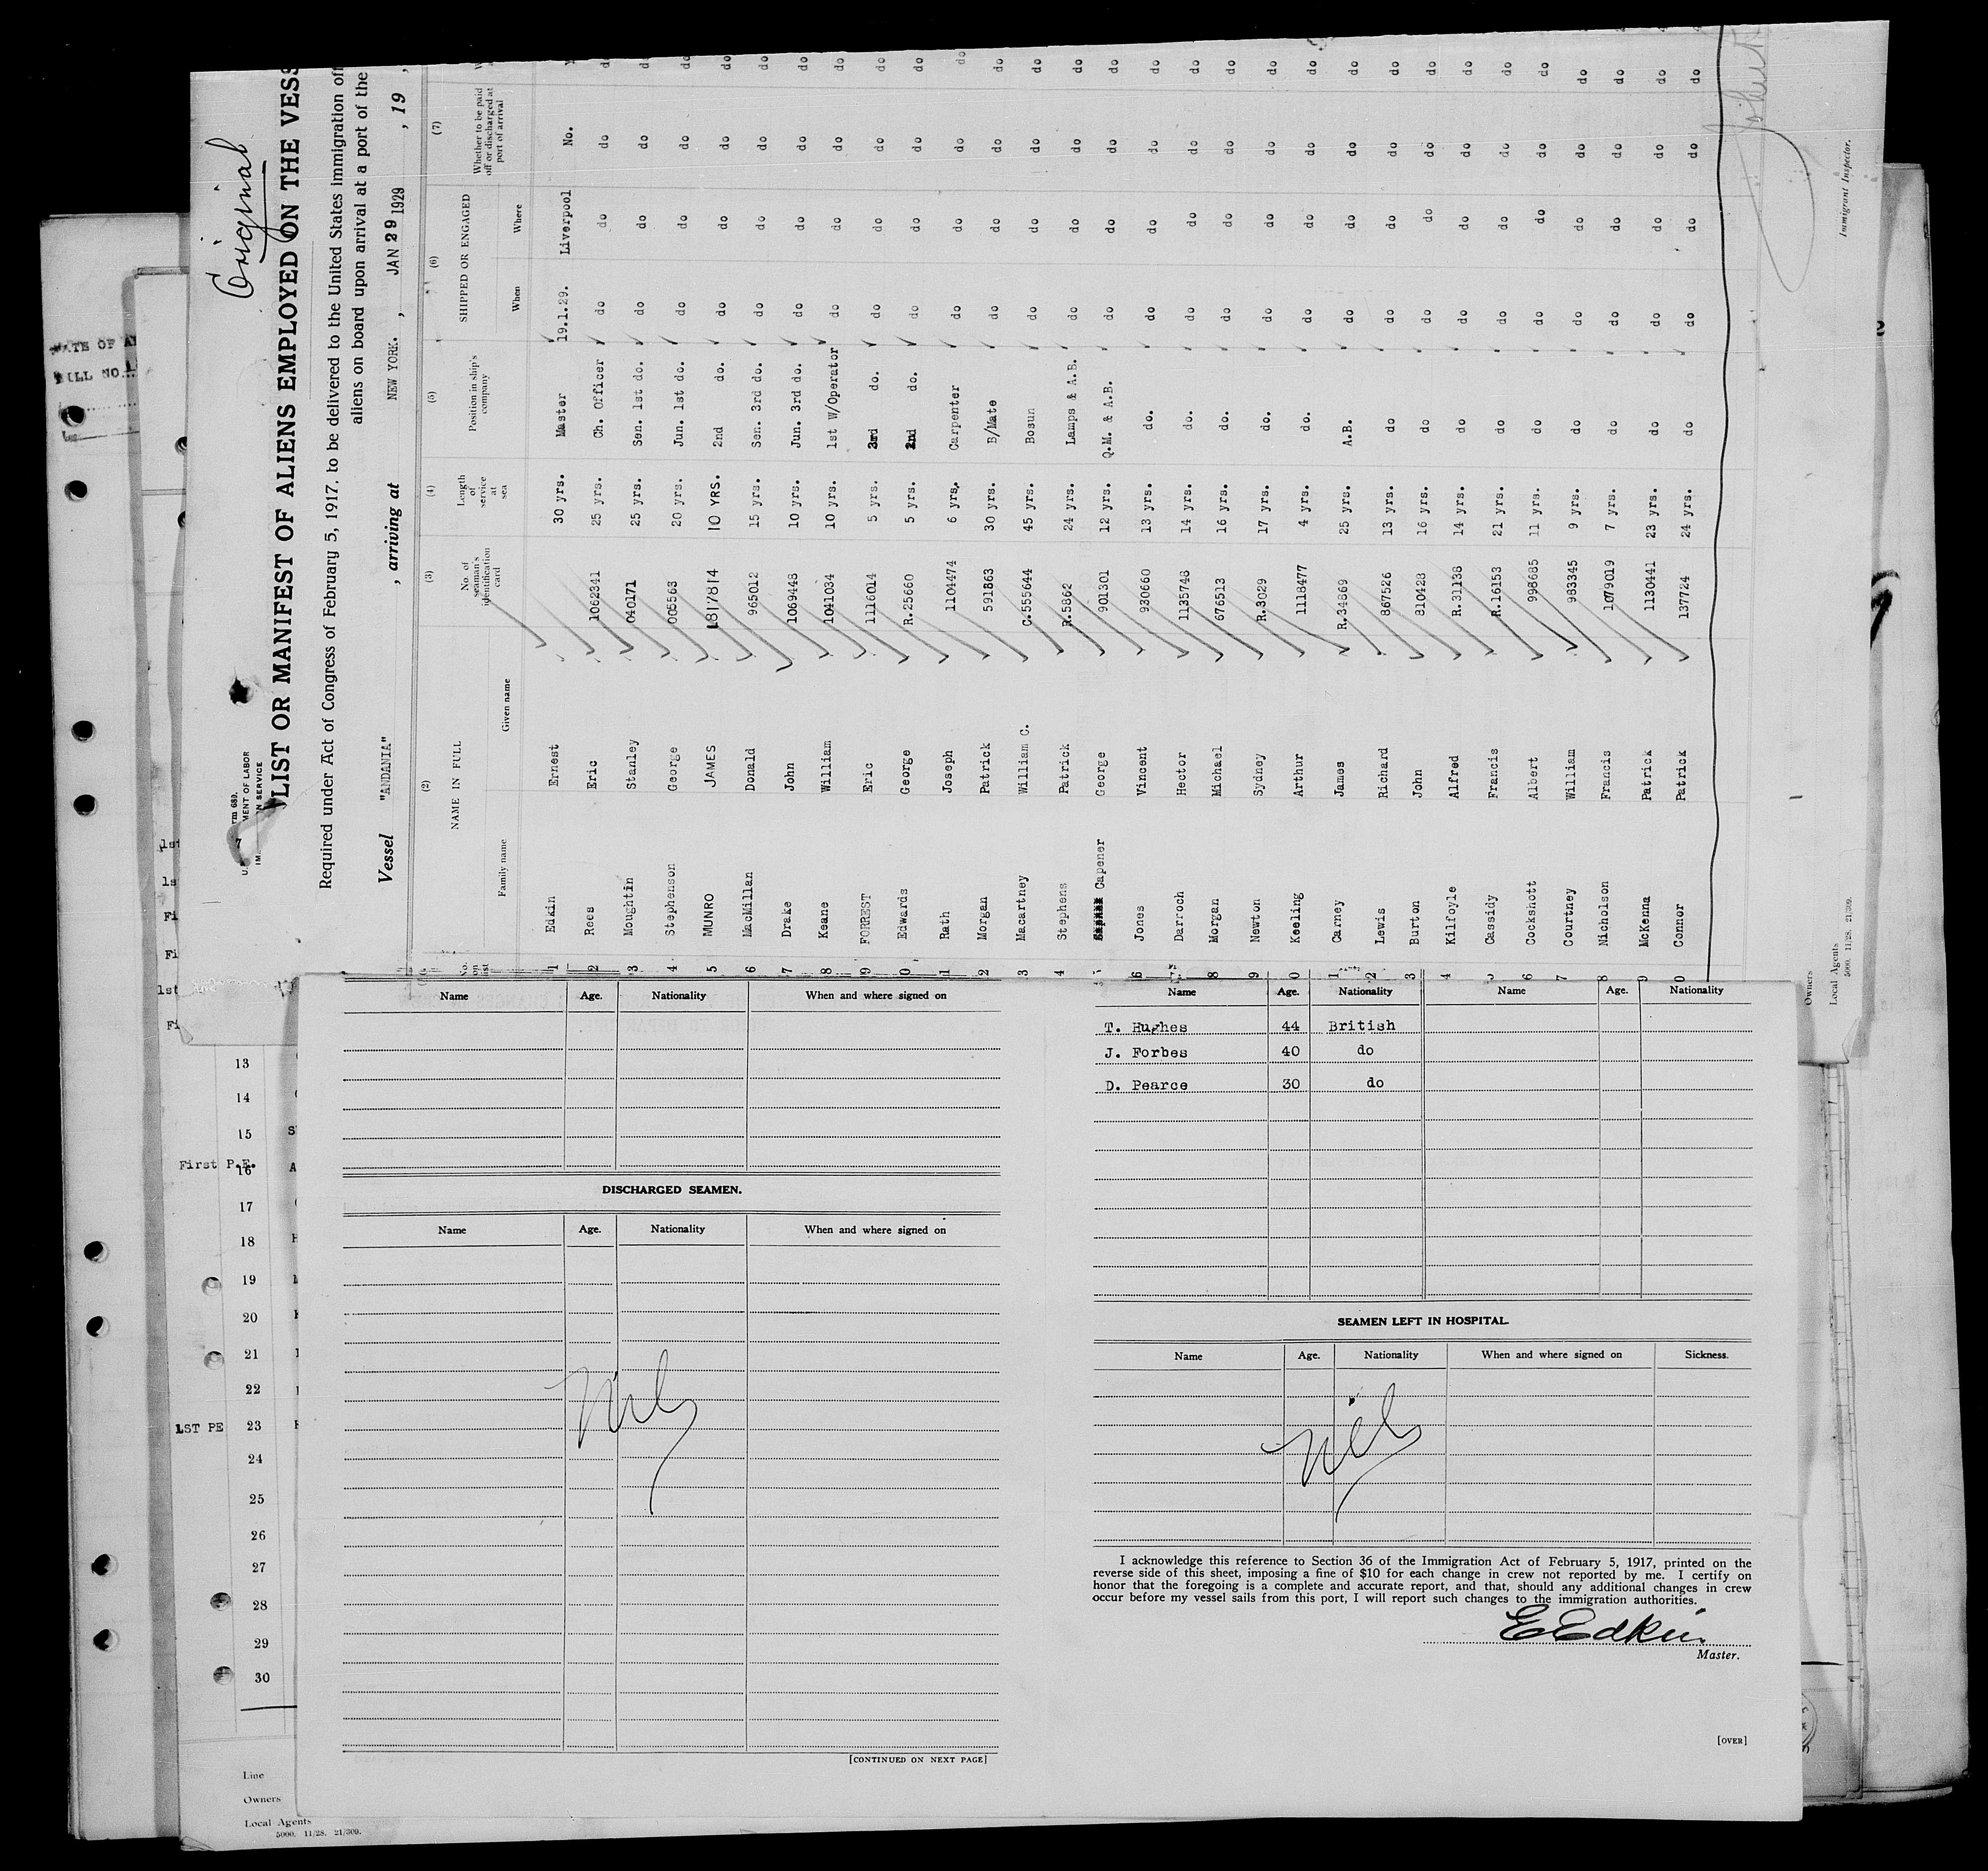 Original
LIST OR MANIFEST OF ALIENS EMPLOYED ON THE VESS
Required under Act of Congress of February 5, 1917, to be delivered to the United States immigration off
aliens on board upon arrival at a port of the
Vessel "ANDANIA", arriving at NEW YORK. , JAN 29 1929 , 19 ,
(2) (3) (4) (5) (6) (7)
NAME IN FULL No. of seaman's identification card Length of service at sea Position in ship's company SHIPPED OR ENGAGED Whether to be paid off or discharged at port of arrival
Family name Given name When Where
1 Edkin Ernest 30 yrs. Master 19.1.29. Liverpool No.
2 Rees Eric 1062341 25 yrs. Ch. Officer do do do do
3 Moughtin Stanley 040171 25 yrs. Sen. 1st do. do do do do
4 Stephenson George 005563 20 yrs. Jun. 1st do. do do do do
5 MUNRO JAMES 1817814 10 YRS. 2nd do. do do do do
6 MacMillan Donald 965012 15 yrs. Sen. 3rd do. do do do do
7 Drake John 1069448 10 yrs. Jun. 3rd do. do do do do
8 Keane William 1041034 10 yrs. 1st W/Operator do do do do
9 FORREST Eric 1116014 5 yrs. 3rd do. do do do do
0 Edwards George R.25660 5 yrs. 2nd do. do do do do
1 Rath Joseph 1104474 6 yrs. Carpenter do do do do
2 Morgan Patrick 591863 30 yrs. B/Mate do do do do
3 Macartney William C. C.555644 45 yrs. Bosun do do do do
4 Stephens Patrick R.5862 24 yrs. Lamps & A.B. do do do do
Capener George 901301 12 yrs. Q.M. & A.B. do do do do
6 Jones Vincent 930660 13 yrs. do. do do do do
Darroch Hector 1135748 14 yrs. do. do do do do
8 Morgan Michael 676513 16 yrs. do. do do do do
9 Newton Sydney R.3029 17 yrs. do. do do do do
0 Keeling Arthur 1118477 4 yrs. do. do do do do
1 Carney James R.34869 25 yrs. A.B. do do do do
2 Lewis Richard 867526 13 yrs. do do do do do
3 Burton John 810428 16 yrs. do do do do do
4 Kilfoyle Alfred R.31138 14 yrs. do do do do do
Cassidy Francis R.16153 21 yrs. do do do do do
6 Cockshott Albert 998685 11 yrs. do do do do do
7 Courtney William 983345 9 yrs. do do do do do
8 Nicholson Francis 1079019 7 yrs. do do do do do
9 McKenna Patrick 1130441 23 yrs. do do do do do
0 Connor Patrick 137724 24 yrs. do do do do do
Immigrant Inspector.
Owners
Local Agents
5000. 11/28. 21/309.
Name Age. Nationality When and where signed on
DISCHARGED SEAMEN.
Name Age. Nationality When and where signed on
Nil
[CONTINUED ON NEXT PAGE]
Name Age. Nationality Name Age. Nationality
T. Hughes 44 British
J. Forbes 40 do
D. Pearce 30 do
SEAMEN LEFT IN HOSPITAL.
Name Age. Nationality When and where signed on Sickness.
Nil
I acknowledge this reference to Section 36 of the Immigration Act of February 5, 1917, printed on the
reverse side of this sheet, imposing a fine of $10 for each change in crew not reported by me. I certify on
honor that the foregoing is a complete and accurate report, and that, should any additional changes in crew
occur before my vessel sails from this port, I will report such changes to the immigration authorities.
E Edkin
Master.
[OVER]
13
14
15
First P.E. 16
17
18
19
20
21
22
1ST PE 23
24
25
26
27
28
29
30
Line
Owners
Local Agents
5000. 11/28. 21/309.